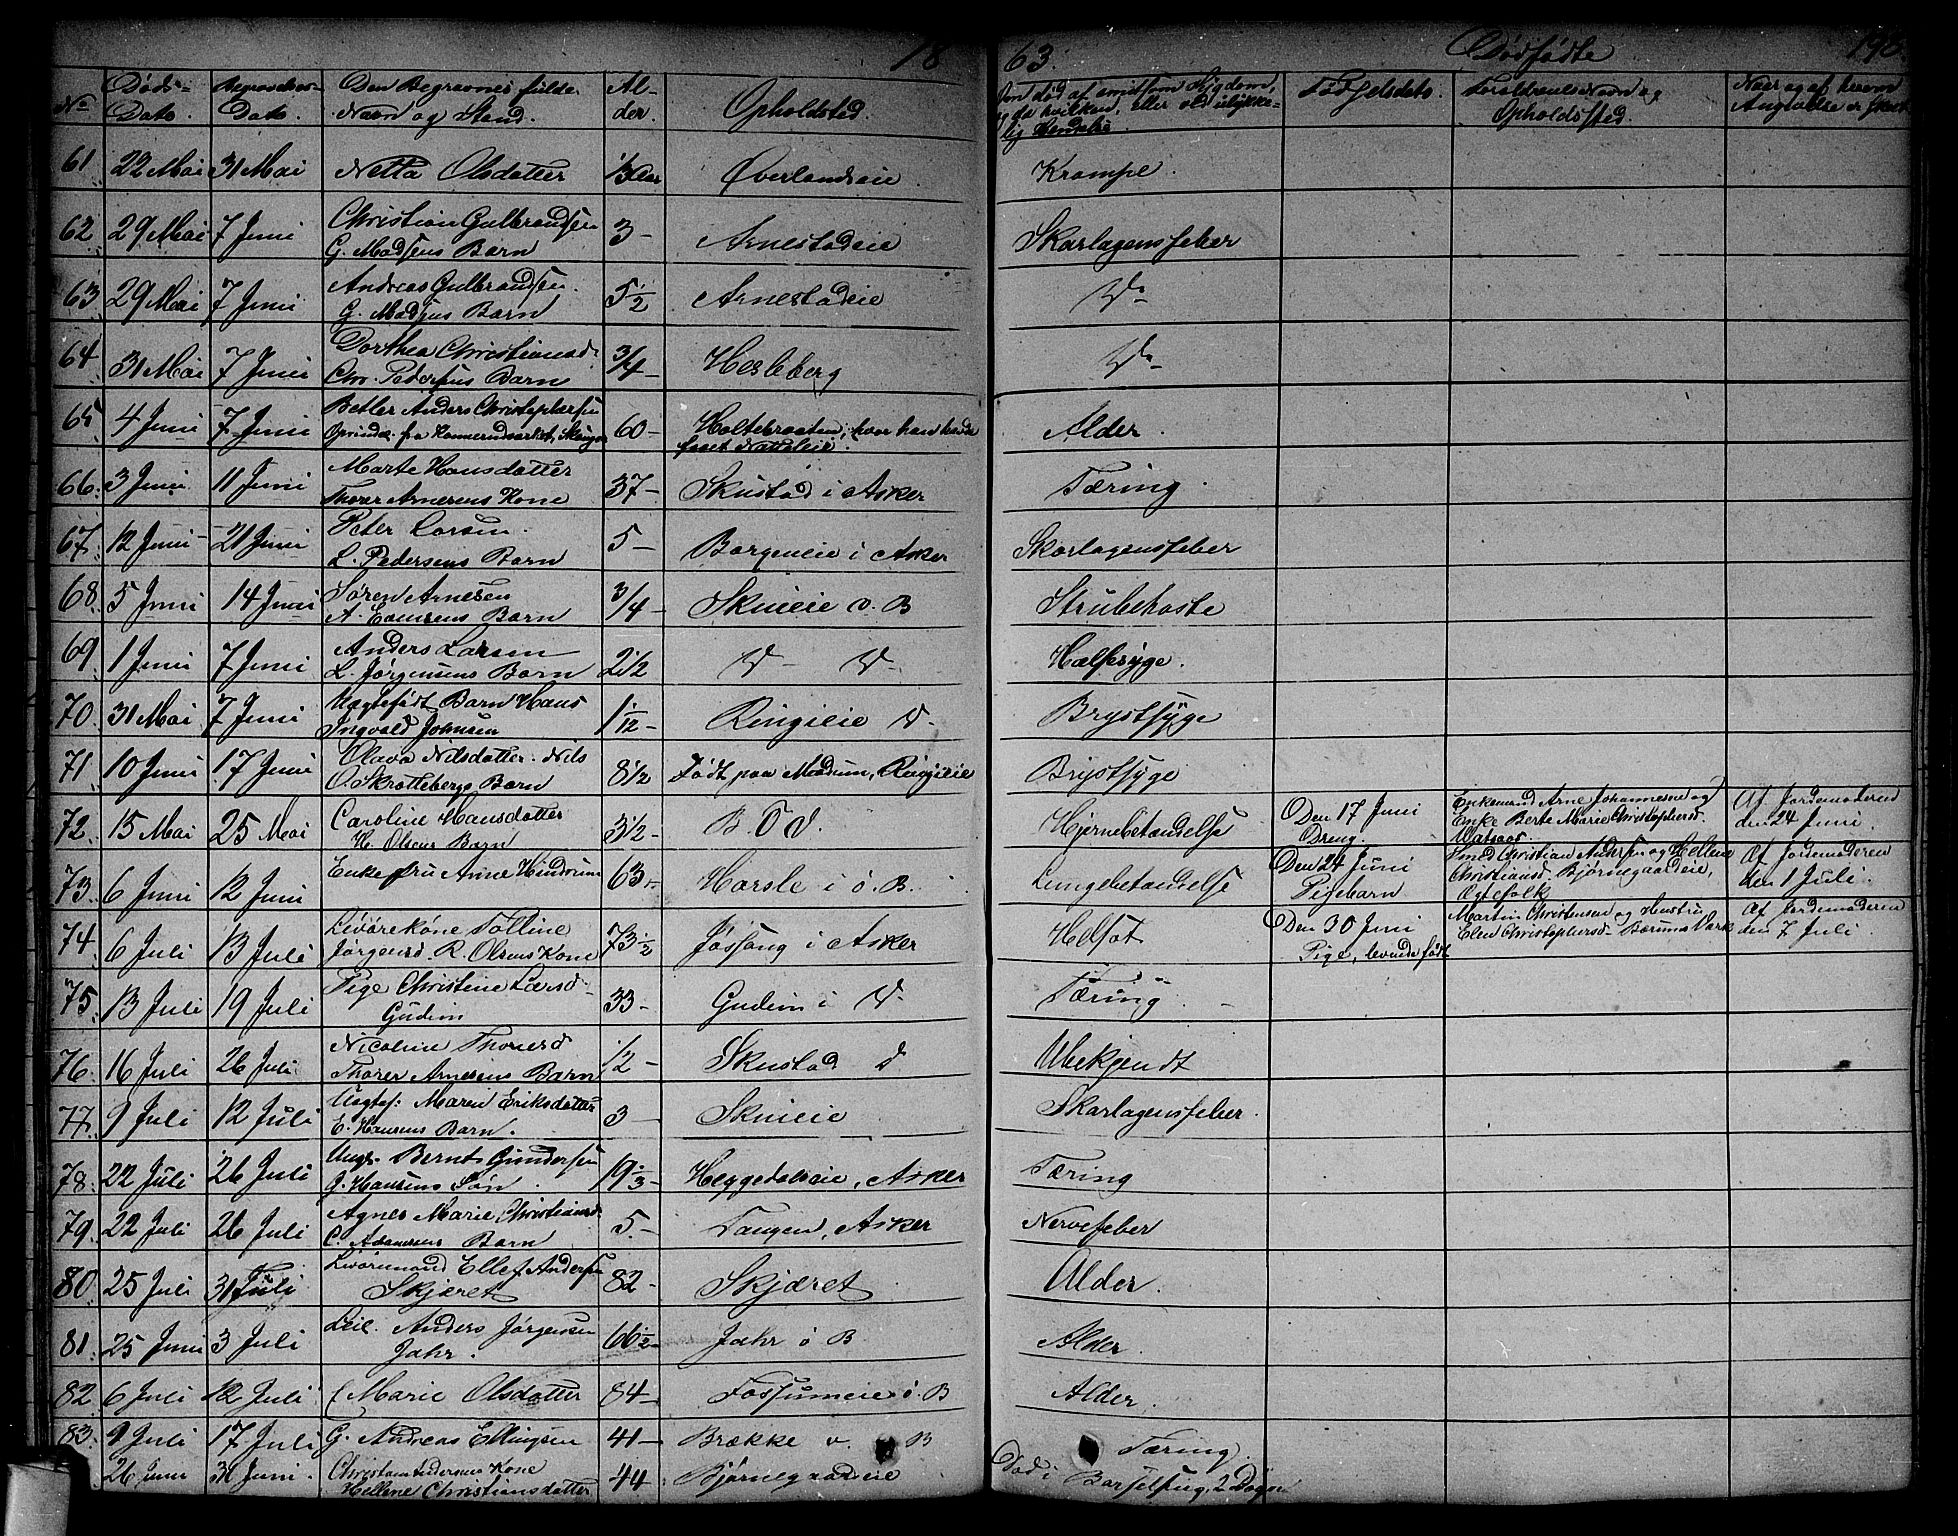 18 63. Dødfødte 196.
No Døds-Dato. Begravelses-Dato. Den Begravnes fulde Navn og Stand. Al-der. Opholdsted. Om død af smitsom Sygdom, og da hvilken, eller ved ulykke-lig Hendelse. Fødselsdato. Forældrenes Navn og Opholdssted. Naar og af hvem Angivelse er skeet
61 22 Mai 31 Mai Netta Olsdatter Øverlandseie Krampe.
62. 29 Mai 7 Juni Christian Gulbrandsen
G. Madsens Barn 3 - Arnestadeie Skarlagensfeber
63 29 Mai 7 Juni Andreas Gulbrandsen.
G. Madsens Barn 5 1/2 Arnestadeie Do
64 31 Mai 7 Juni Dorthea Christiansd.
Chr. Pedersens Barn 3/4 - Hesleberg Do
65 4 Juni 7 Juni Betler Anders Christophersen
fra Skouger 60 - Holtebraaten, hvor han havde
faaet Natteleie. Alder.
66. 3 Juni. 11 Juni Marte Hansdatter
Thorer Arnesens Kone 37 - Skustad i Asker Tæring.
67. 12 Juni 21 Juni Peter Larsen.
L. Pedersens Barn 5 - Borgeneie i Asker Skarlagensfeber
68. 5 Juni 14 Juni Søren Arnesen
A. Barn 3/4 - Skuieie v. B Strubehoste
69. 1 Juni 7 Juni Anders Larsen
L. Jørgensens Barn 2 1/2 D - D - Halfsyge.
70. 31 Mai 7 Juni Uægtefødt Barn Hans
Ingvald Johnsen 1/12 - Ringieie D. Brystsyge
71 10 Juni 17 Juni Olava Nilsdatter. Nils
O. Skrottebergs Barn 8 1/2 Født paa Modum, Ringieie Brystsyge
72. 15 Mai 25 Mai Caroline Hansdatter
H. Olsens Barn 3 1/2 - Hjernebetændelse Den 17 Juni
Dreng. Enkemand Arne Johannesen og
Enke Berte Marie Christophersd. Af Jordemoderen
den 24 Juni.
73. 6 Juni 12 Juni Enkefru Anne Hindrum 63 - Harsle i ø. B. Lungebetændelse Den 24 Juni
Pigebarn Christian Andersen og Hellene
Christiansd. Bjørnegaardeie,
Ægtefolk Af Jordemoderen
den 1 Juli.
74. 6 Juli 13 Juli Livørekone Tolline
Jørgensd. R. Olsens Kone 73 1/2 Jøssong i Asker Helsot Den 30 Juni
Pige, levende født Martin Christensen og Hustru
Elen Christophersd. Bærums Værk Af Jordemoderen
den 7 Juli.
75. 13 Juli 19 Juli Pige Christine Larsd.
Gudim 33 - Gudim i D - Tæring.
76. 16 Juli 26 Juli. Nicoline Thoresd
Thorer Arnesens Barn 1/2 - Skustad D Ubekjendt
77. 9 Juli 12 Juli Uægtef: Maren Eriksdatter
E. Hansens Barn. 3 - Skuieie Skarlagensfeber.
78. 22 Juli 26 Juli Ungk. Bernt Gundersen
G. Hansens Søn. 19 1/3 - Heggedalseie, Asker Tæring
79. 22 Juli 26 Juli Agnes Marie Christiansd.
C. Adamsens Barn 5. - Tangen, Asker Nervefeber
80. 25 Juli 31 Juli Livøremand Ellef Andersen
Skjæret 82 - Skjæret Alder.
81. 25 Juni 3 Juli Leil. Anders Jørgensen
Jahr. 66 1/2 - Jahr ø B. Alder.
82. 6 Juli 12 Juli Marie Olsdatter 84 - Fossumeie ø. B Alder.
83. 9 Juli 17 Juli G. Andreas Ellingsen 41 - Brække v. B Tæring.
26 Juni 31 Juni. Christian Andersens Kone
Hellene Christiansdatter 44 - Bjørnegaardeie Død i Barselseng, 2 Døgn